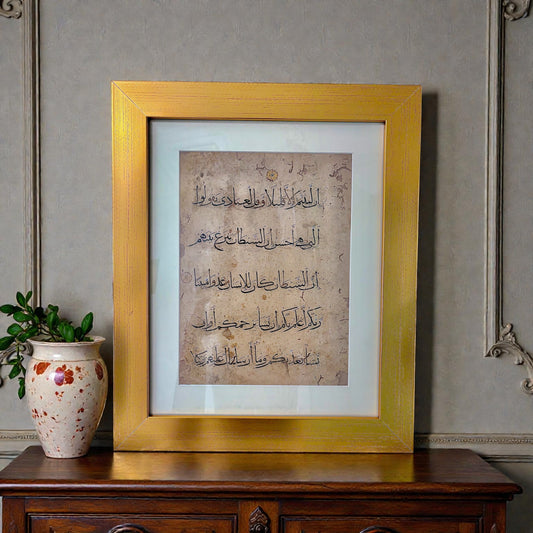 إن لبثتم إلا قليلا وقل لعبادي يقولوا
التي هي أحسن إن الشيطان ينزغ بينهم
إن الشيطان كان للإنسان عدوا مبينا
ربكم أعلم بكم إن يشأ يرحمكم أو إن
يشأ يعذبكم وما أرسلناك عليهم